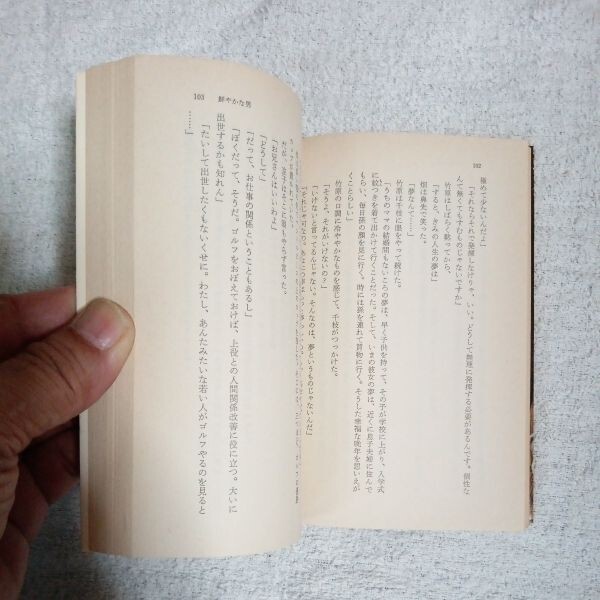 102
極めて少ないんだよ」
「それならそれで発揮しなけりゃ、いい。どうして無理に発揮する必要があるんです。個性な
んて無くてもすむものじゃないですか」
竹原はしばらく黙ってから、
「すると、きみの人生の夢は」
畑は鼻先で笑った。
「夢なんて……」
竹原は千枝に眼をやって続けた。
「うちのママの結婚間もないころの夢は、早く子供を持って、その子が学校に上がり、入学式
に紋つきを着て出かけて行くことだった。そして、いまの彼女の夢は、近くに息子夫婦に住んで
もらい、毎日孫の顔を見に行く。時には孫を連れて買物に行く。そうした幸福な晩年を思いえが
くことらしい」
竹原の口調に冷ややかなものを感じて、千枝がつっかけた。
「そうよ、それがいけないの?」
「いけないと言ってるんじゃない。そんなのは、夢というものじゃないんだ」
103 鮮やかな男
「お兄さんはいいわよ」
「どうして」
「だって、お仕事の関係ということもあるし」
「ぼくだって、そうだ。ゴルフをおぼえておけば、上役との人間関係改善に役に立つ。大いに
出世するかも知れん」
「たいして出世したくもないくせに。わたし、あんたみたいな若い人がゴルフやるのを見ると
……」